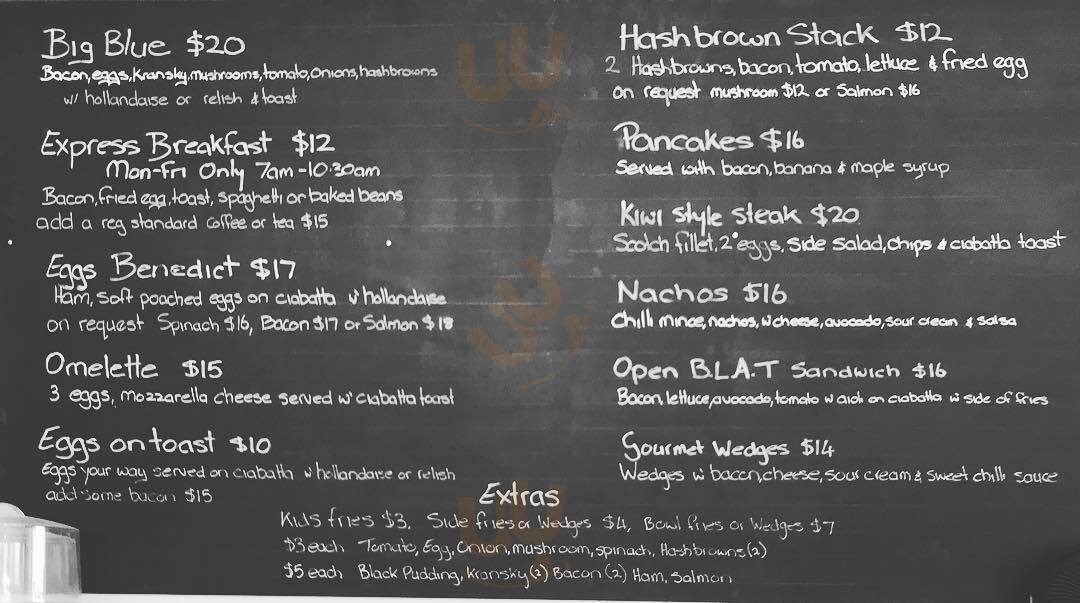 Big Blue $20
Bacon, eggs, Kransky, mushrooms, tomato, Onions, hashbrowns
w/ hollandaise or relish & toast
Express Breakfast $12
Mon-Fri Only 7am-10.30am
Bacon, fried egg, toast, spaghetti or baked beans
add a reg standard coffee or tea $15
Eggs Benedict $17
Ham, Soft poached eggs on ciabatta w' hollandaise
on request Spinach $16, Bacon $17 or Salmon $18
Omelette $15
3 eggs, mozzarella cheese served w' ciabatta toast
Eggs on toast $10
Eggs your way served on ciabatta w hollandaise or relish
add some bacon $15
Hashbrown Stack $12
2 Hashbrowns, bacon, tomato, lettuce & fried egg
on request mushroom $12 or Salmon $16
Pancakes $16
Served with bacon, banana & maple syrup
Kiwi Style Steak $20
Scotch fillet, 2 eggs, Side Salad, chips & ciabatta toast
Nachos $16
Chilli mince, nachos, w cheese, avocado, sour cream & salsa
Open B.L.A.T Sandwich $16
Bacon, lettuce, avocado, tomato w aioli on ciabatta w side of fries
Gourmet Wedges $14
Wedges w' bacon, cheese, sour cream & sweet chilli sauce
Extras
Kids fries $3, Side fries or Wedges $4, Bowl fries or Wedges $7
$3 each Tomato, Egg, Onion, mushroom, spinach, Hashbrowns (2)
$5 each Black Pudding, Kransky (2) Bacon (2) Ham, Salmon